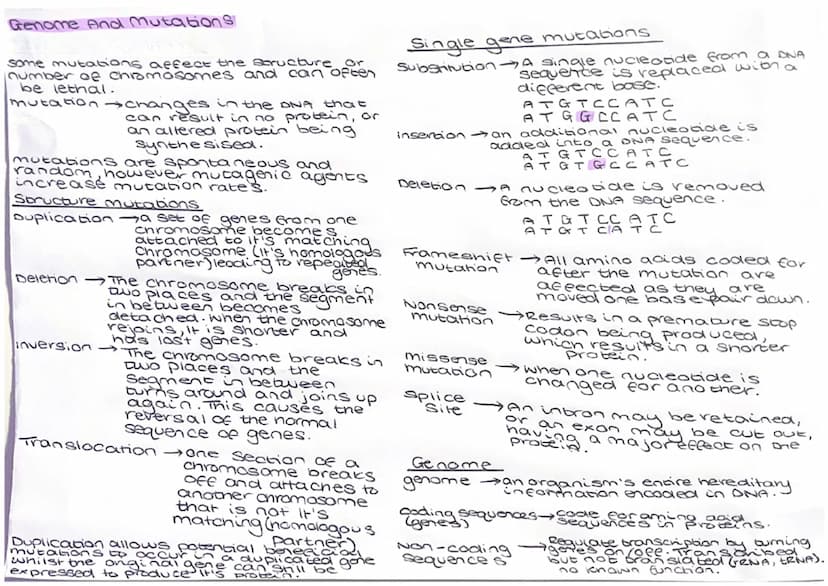 Genome And Mutations
some mutations affect the structure or
number of chromosomes and can often
be lethal.
mutation → changes in the DNA that
can result in no protein, or
an altered protein being
synthesised.
mutations are spontaneous and
random, however mutagenic agents
increase mutation rates.
Structure mutations
Duplication → a set of genes from one
chromosome becomes
attached to it's matching
chromosome (it's homologous
partner) leading to repeated
genes.
Deletion → The chromosome breaks in
two places and the segment
in between becomes
detached. When the chromosome
rejoins, it is shorter and
has lost genes.
inversion → The chromosome breaks in
two places and the
segment in between
turns around and joins up
again. This causes the
reversal of the normal
sequence of genes.
Translocation → one section of a
chromosome breaks
off and attaches to
another chromosome
that is not it's
matching (homologous
partner)
Duplication allows potential beneficial
mutations to occur in a duplicated gene
whilst the original gene can still be
expressed to produce it's protein.
Single gene mutations
Substitution → A single nucleotide from a DNA
sequence is replaced with a
different base.
A T G T C C A T C
A T G G C C A T C
Insertion → an additional nucleotide is
added into a DNA sequence.
A T G T C C A T C
A T G T G C C A T C
Deletion → A nucleotide is removed
from the DNA sequence.
A T G T C C A T C
A T G T C A T C
Frameshift → All amino acids coded for
mutation after the mutation are
affected as they are
moved one base pair down.
Nonsense → Results in a premature stop
mutation codon being produced,
which results in a shorter
protein.
missense → when one nucleotide is
mutation changed for another.
Splice → An intron may be retained,
Site or an exon may be cut out,
having a major effect on the
protein.
Genome
genome → an organism's entire hereditary
information encoded in DNA.
Coding sequences → code for amino acid
(genes) sequences in proteins.
Non-coding → Regulate transcription by turning
sequences genes on/off. Transcribed
but not translated (rRNA, tRNA).
no known function.